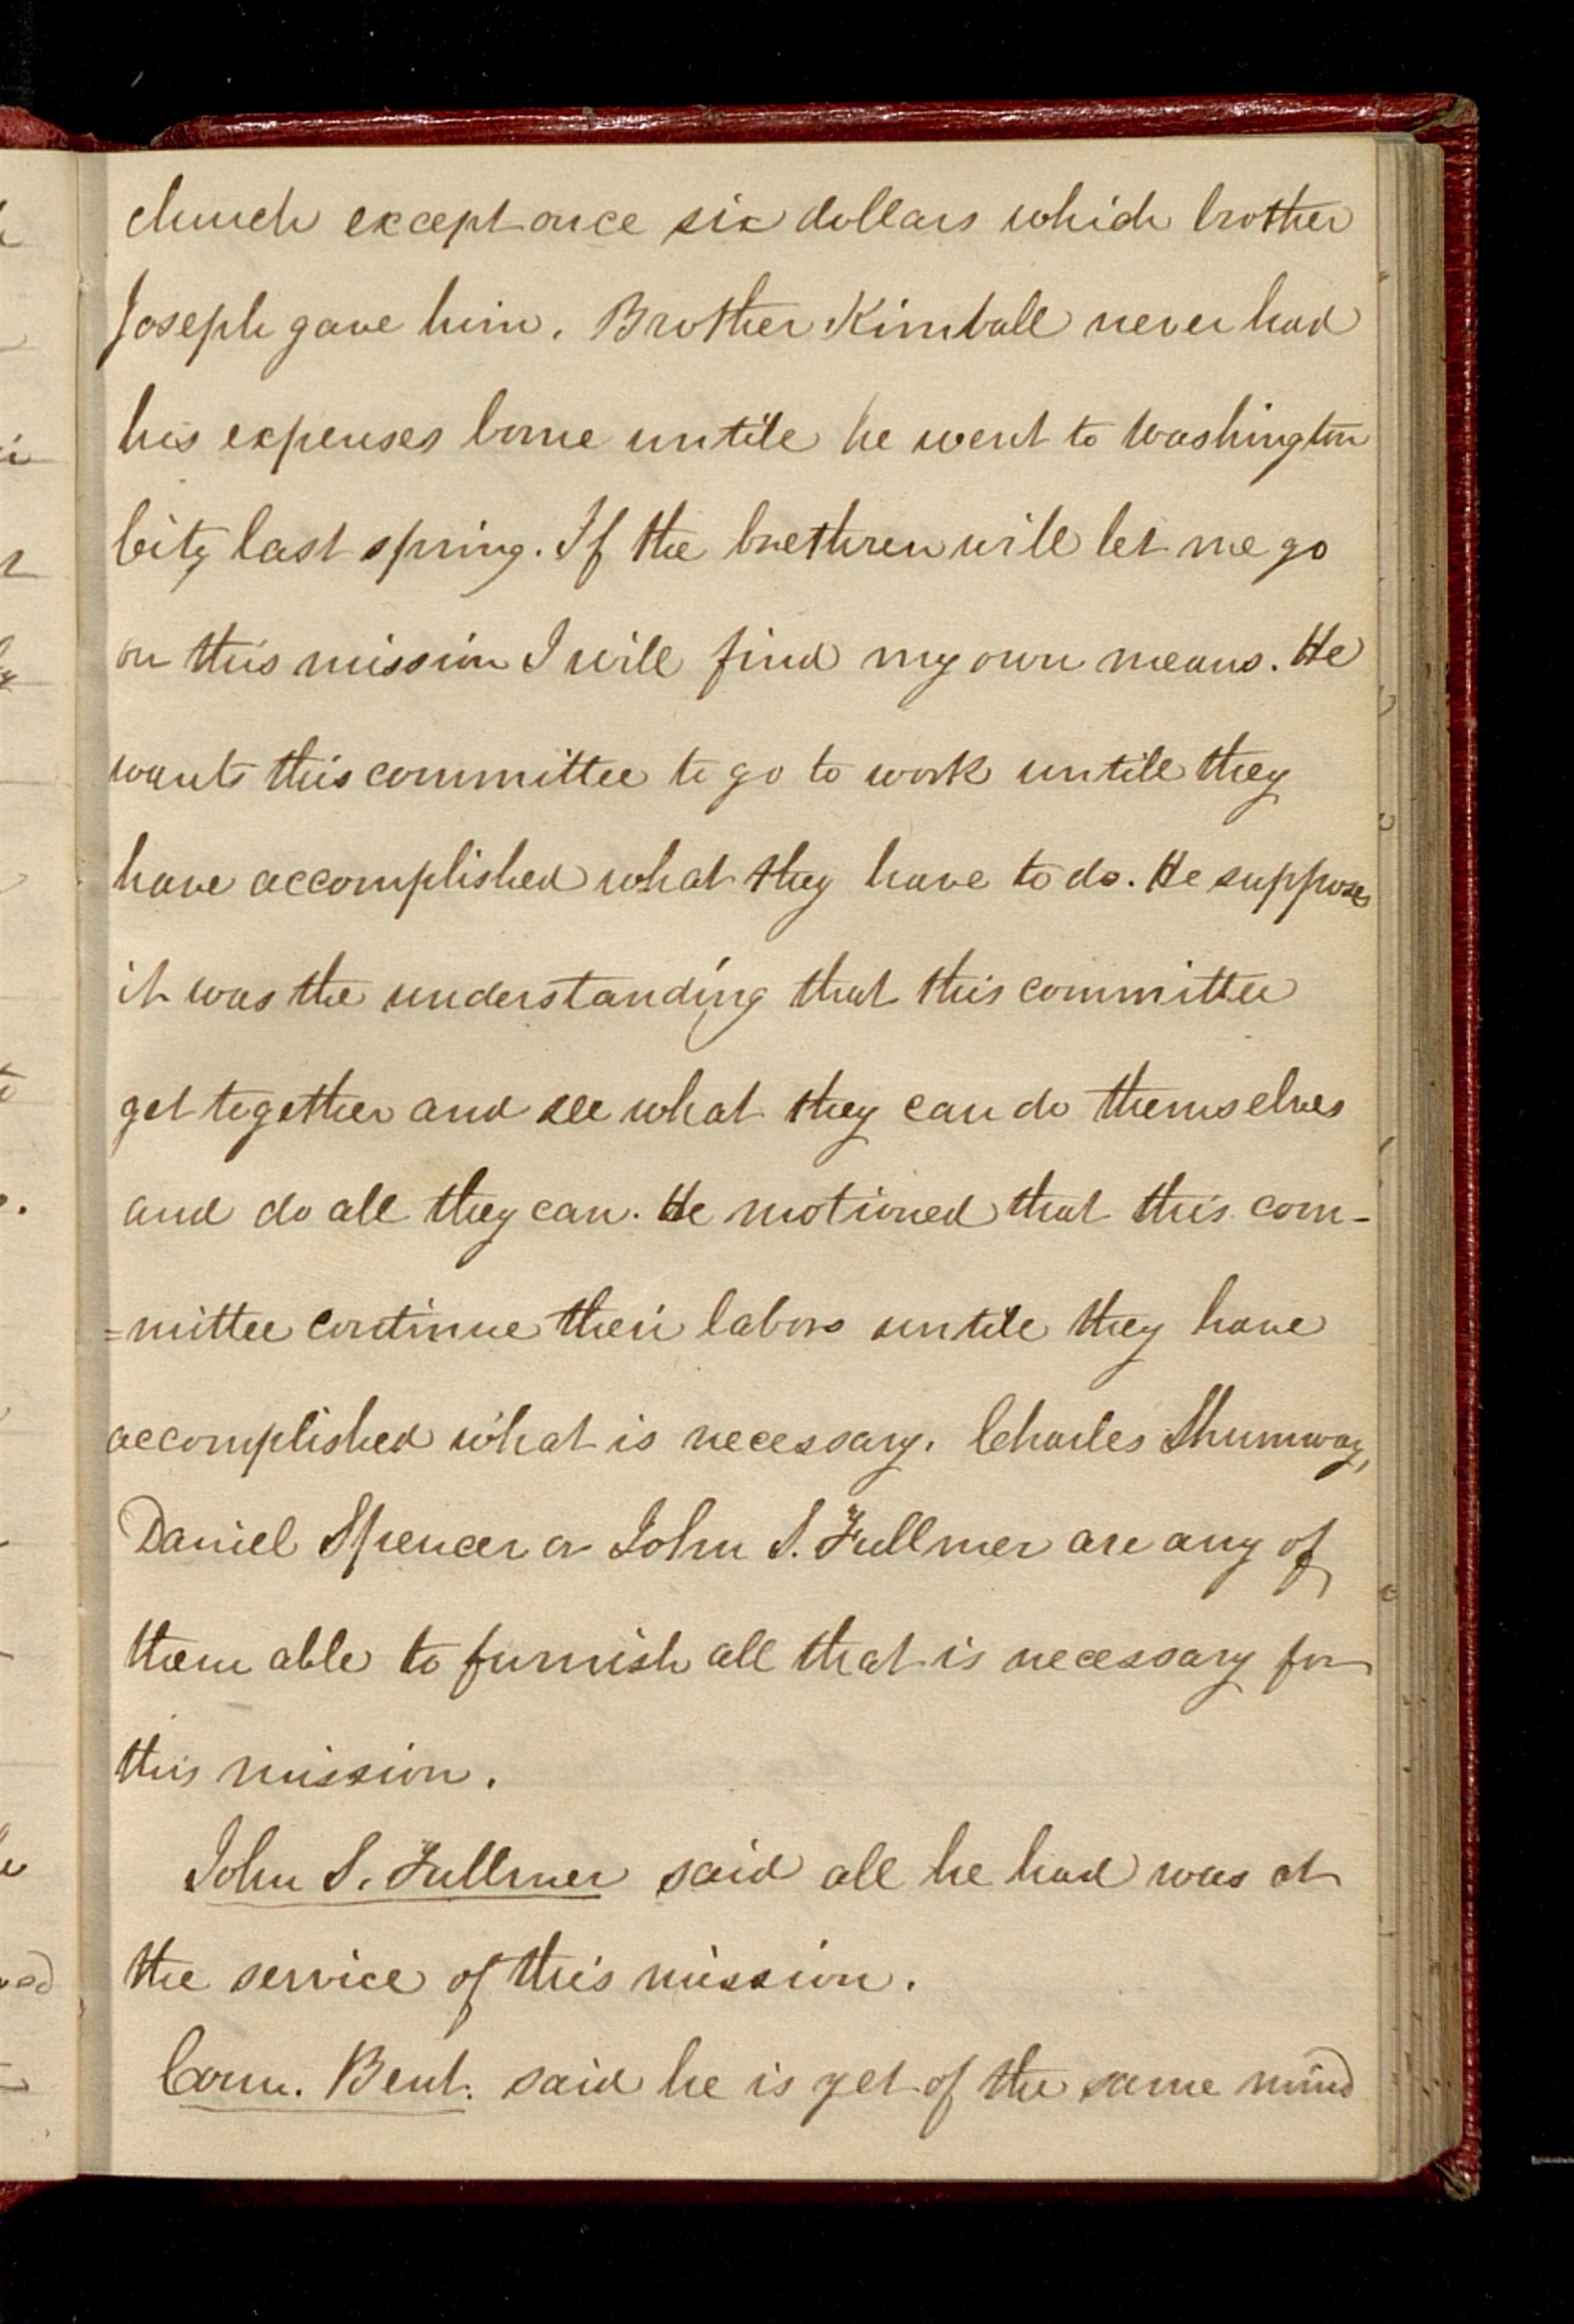 church except once six dollars which brother
Joseph gave him. Brother Kimball never had
his expenses borne untill he went to Washington
City last spring. If the brethren will let me go
on this mission I will find my own means. He
wants this committee to go to work untill they
have accomplished what they have to do. He supposes
it was the understanding that this committee
get together and see what they can do themselves
and do all they can. He motioned that this com-
=mittee continue their labors untill they have
accomplished what is necessary. Charles Shumway,
Daniel Spencer or John S. Fullmer are any of
them able to furnish all that is necessary for
this mission.
John S. Fullmer said all he had was at
the service of this mission.
Coun. Bent. said he is yet of the same mind